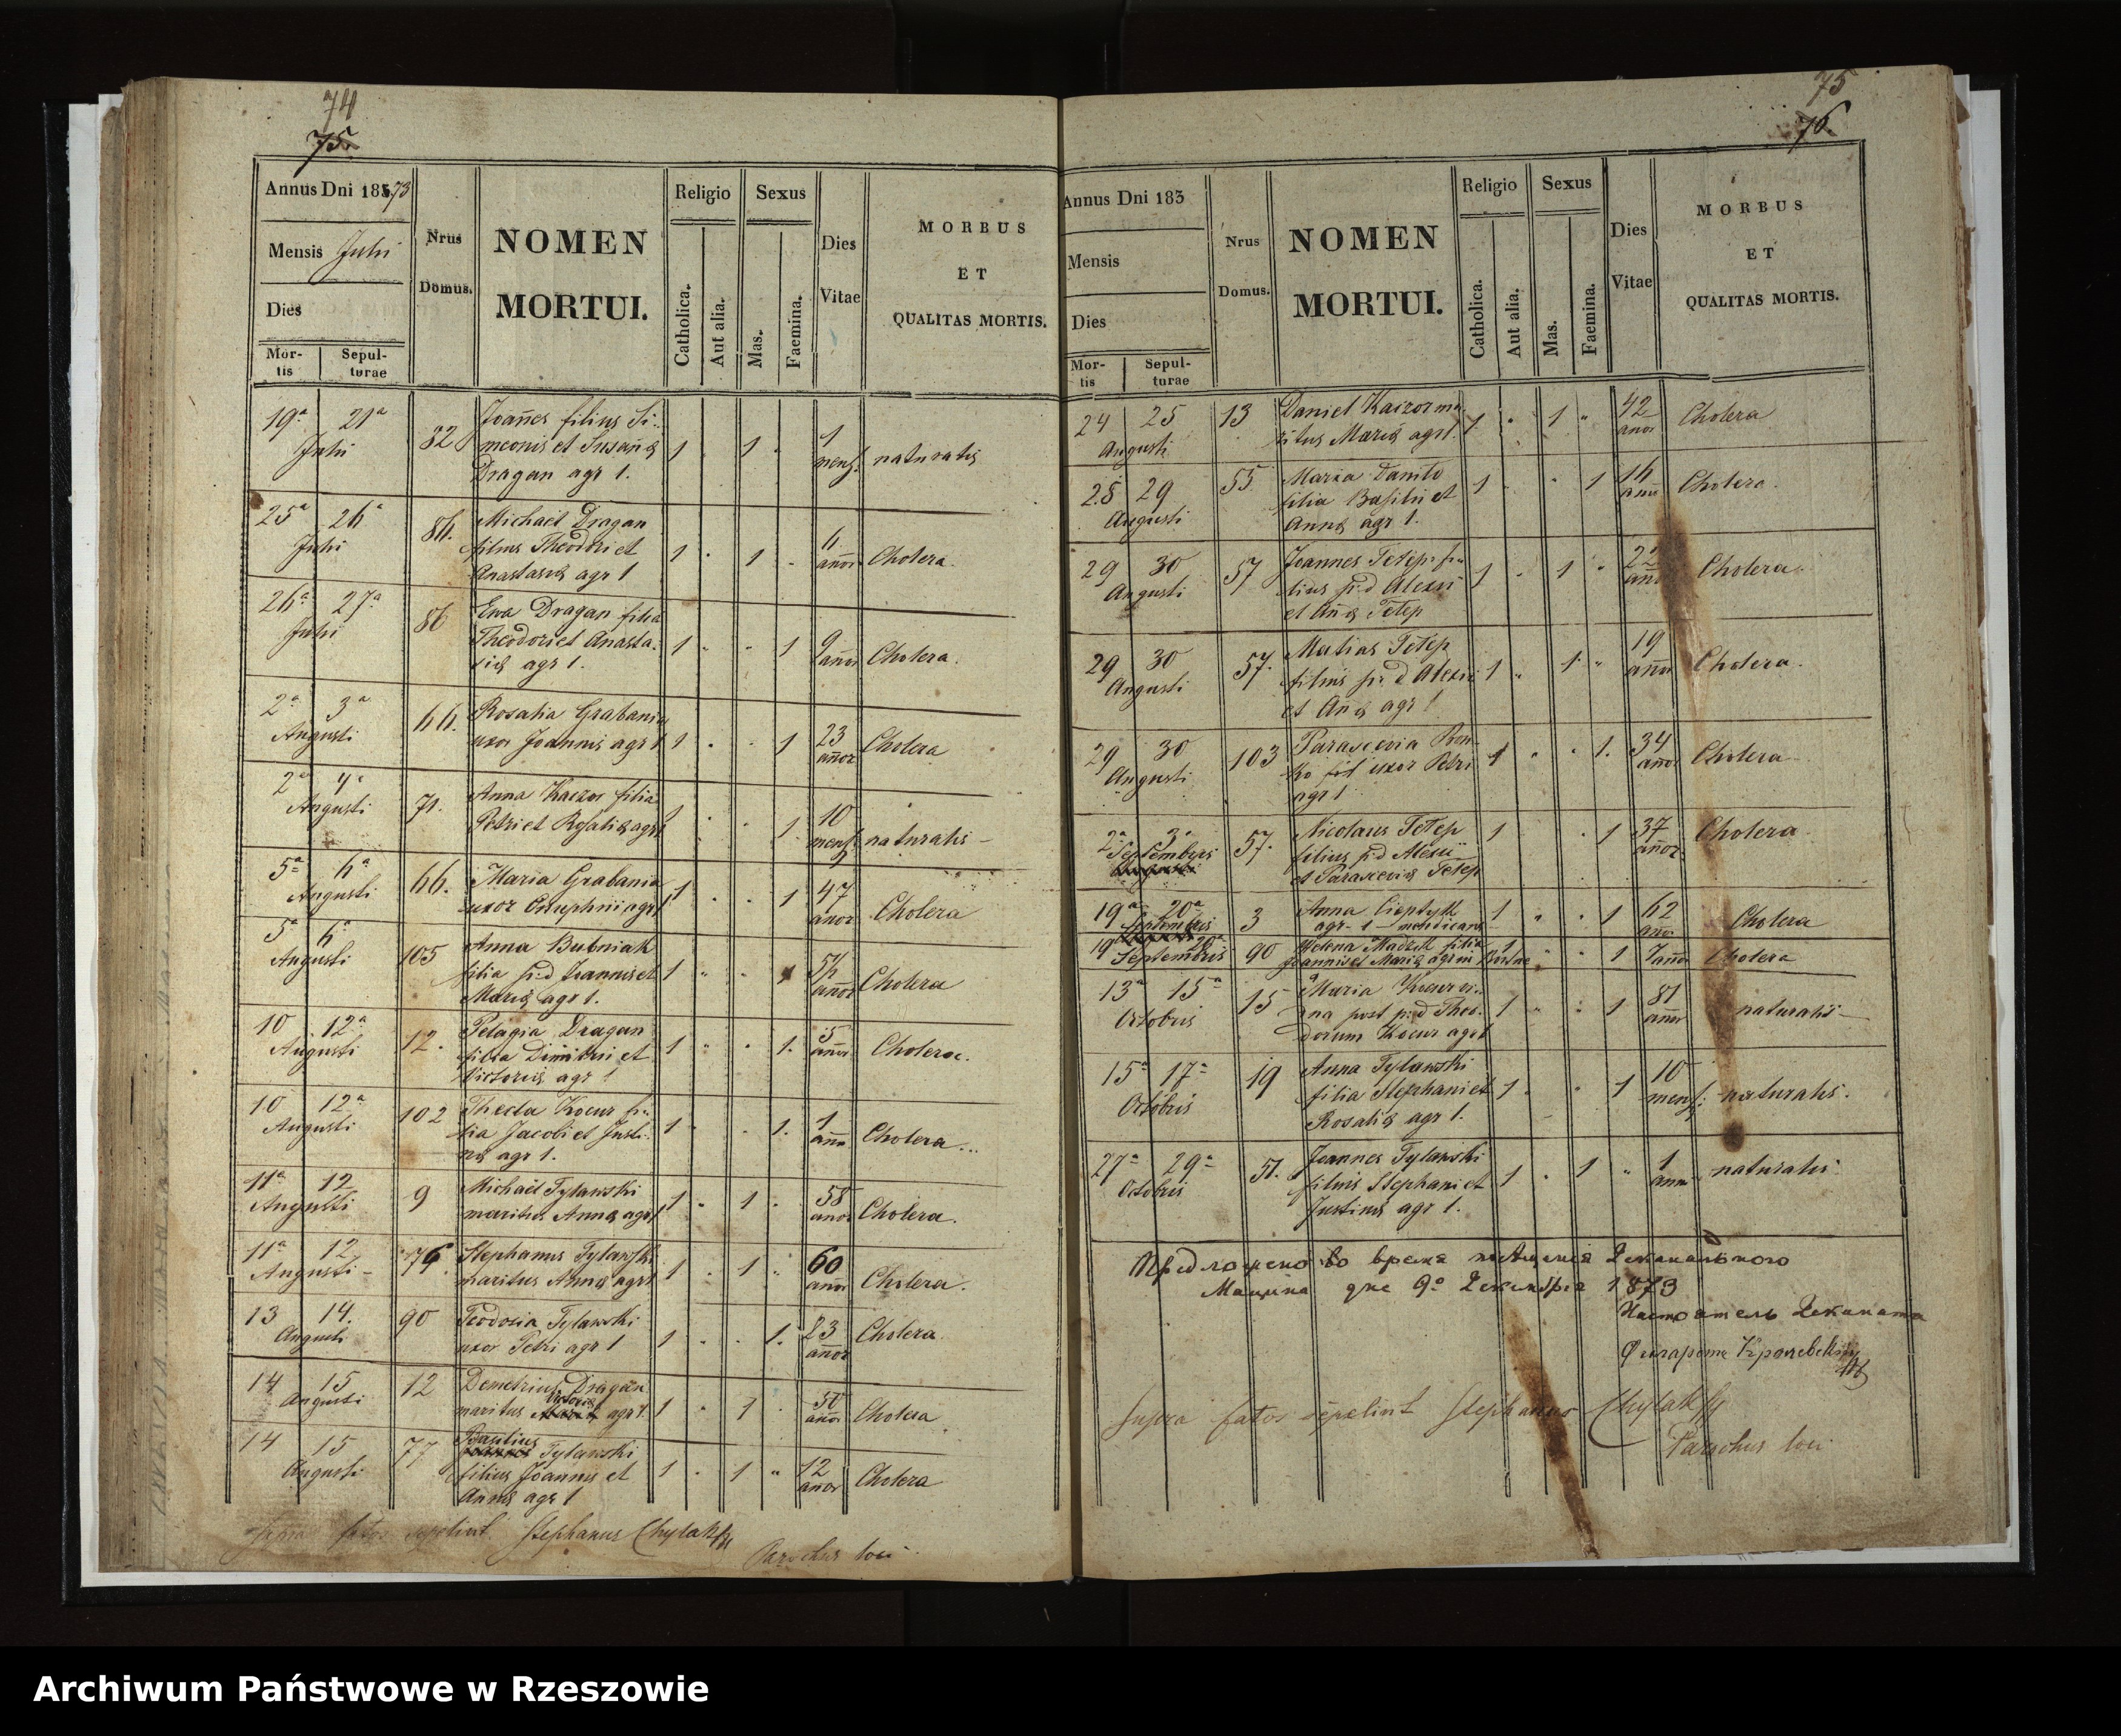 74
75.
Annus Dni 1873
Mensis Julii
Dies
Mor-
tis
Sepul-
turae
Nrus
Domus.
NOMEN
MORTUI.
Religio
Catholica.
Aut alia.
Sexus
Mas.
Faemina.
Dies
Vitae
MORBUS
ET
QUALITAS MORTIS.
19a 21a
Julii
82
Joañes filius Si-
meonis et Susañæ
Dragan agr 1.
1 1
1
mens.
naturalis
25a 26a
Julii
86.
Michaël Dragan
filius Theodori et
Anastasiæ agr 1
1 1
6
añor
Cholera.
26a 27a
Julii
86
Ewa Dragan filia
Theodori et Anasta-
siæ agr 1.
1 1
9
añor
Cholera.
2a 3a
Augusti
66.
Rosalia Grabania
uxor Joannis agr 1
1 1
23
añor
Cholera
2a 4a
Augusti
71.
Anna Kaczor filia
Petri et Rosaliæ agr 1
1.
10
mens
naturalis
5a 6a
Augusti
66.
Maria Grabania
uxor Onuphrii agr 1
1 1
47
añor
Cholera
5a 6a
Augusti
105
Anna Bubniak
filia p:d Joannis et
Mariæ agr 1.
1 1
añor
Cholera
10 12a
Augusti
12.
Pelagia Dragan
filia Dimitri et
Victoriæ agr 1
1 1.
5
añor
Cholera.
10 12a
Augusti
102
Thecla Kocur fi-
lia Jacobi et Justi-
næ agr 1.
1 1.
1
anni
Cholera
11a 12
Augusti
9
Michaël Tylawski
maritus Annæ agr 1
1 1
58
anor
Cholera.
11a 12
Augusti
76
Stephanus Tylawski
maritus Annæ agr 1
1 1
60
anor
Cholera.
13 14.
Augusti
90
Teodosia Tylawski
uxor Petri agr 1
1 1.
23
añor
Cholera
14 15
Augusti
12
Demetrius Dragan
Victoriæ
maritus agr 1.
1 1
30
añor
Cholera
14 15
Augusti
77
Basilius
Tylawski
filius Joannis et
Annæ agr 1
1 1
12
anor
Cholera
Supra fatos sepelivit Stephanus Chylak
Parochus loci
75
76.
Annus Dni 183
Mensis
Dies
Mor-
tis
Sepul-
turae
Nrus
Domus.
NOMEN
MORTUI.
Religio
Catholica.
Aut alia.
Sexus
Mas.
Faemina.
Dies
Vitae
MORBUS
ET
QUALITAS MORTIS.
24 25
Augusti
13
Daniel Kaczor ma-
ritus Mariæ agr 1.
1 1
42
anor
Cholera
28 29
Augusti
55
Maria Danilo
filia Basilii et
Annæ agr 1.
1 1
16
anor
Cholera.
29 30
Augusti
57
Joannes Tetep fi-
lius p:d Alexii
et Añæ Tetep
1 1
Cholera.
29 30
Augusti
57.
Matias Tetep
filius p:d Alexii
et Añæ agr 1
1 1
19
añor
Cholera.
29 30
Augusti
103
Parascevia
uxor Petri
agr 1
1 1.
34
añor
Cholera
2a 3a
Septembris
57.
Nicolaus Tetep
filius p:d Alexii
et Parasceviæ Tetep
1 1
37
añor
Cholera
19a 20a
Septembris
3
Anna
agr 1 mendicans
1 1
62
añor
Cholera
19 20a
Septembris
90
Helena filia
Joannis et Mariæ
1 1
7 añor
Cholera
13a 15a
Octobris
15
Maria Kocur
post p:d Theo-
dorum Kocur agr 1
1 1
81
añor
naturalis
15a 17a
Octobris
19
Anna Tylawski
filia Stephani et
Rosaliæ agr 1.
1 1
10
mens
naturalis.
27a 29a
Octobris
51.
Joannes Tylawski
filius Stephani et
Justinæ agr 1.
1 1
1
anni
naturalis
Предложено во время Деканального
Мацина дня 9о Декемврія 1873
Настоятель Деканата
Supra fatos sepelivit Stephanus Chylak
Parochus loci
Archiwum Państwowe w Rzeszowie